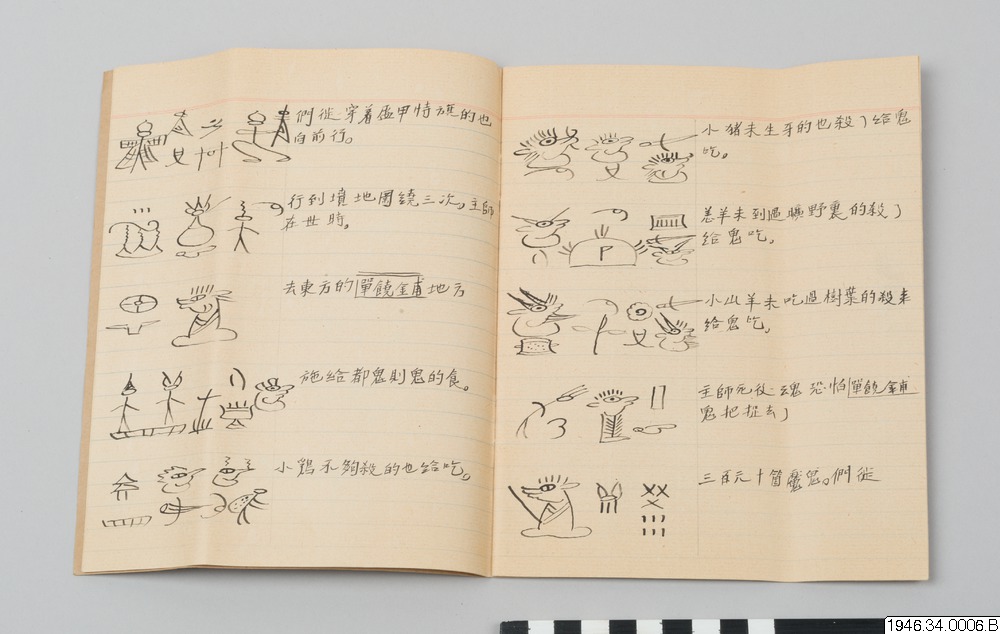 們徙穿着盔甲特旗的也
向前行。
行到墳地圍繞三次。主師
在世時。
去東方的單饒金甫地方
施給都鬼則鬼的食。
小鶏不夠殺的也給吃。
小猪未生牙的也殺了給鬼
吃。
羔羊未到過曠野裏的殺了
給鬼吃。
小山羊未吃過樹葉的殺来
給鬼吃。
主師死後魂恐怕單饒金甫
鬼把捉去了
三百六十箇魔鬼。們徙
1946.34.0006.B